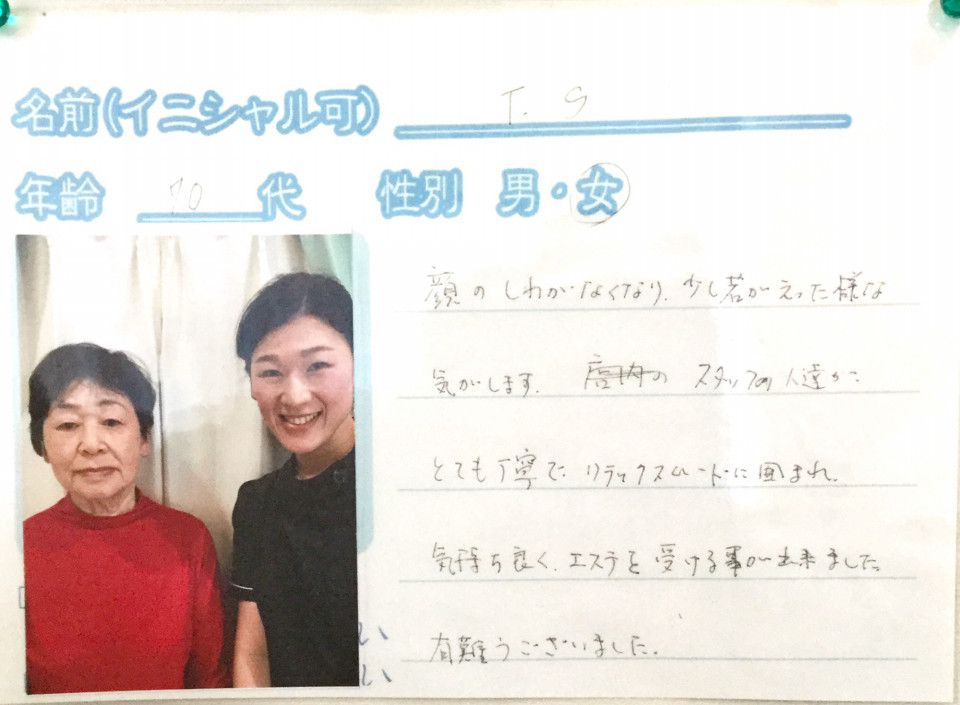 名前(イニシャル可) T. S
年齢 70 代 性別 男・女
顔のしわがなくなり、少し若がえった様な
気がします。 店内の スタッフの人達が
とても丁寧で リラックスムードに囲まれ、
気持ち良く、エステを受ける事が出来ました
有難うございました。
い
い